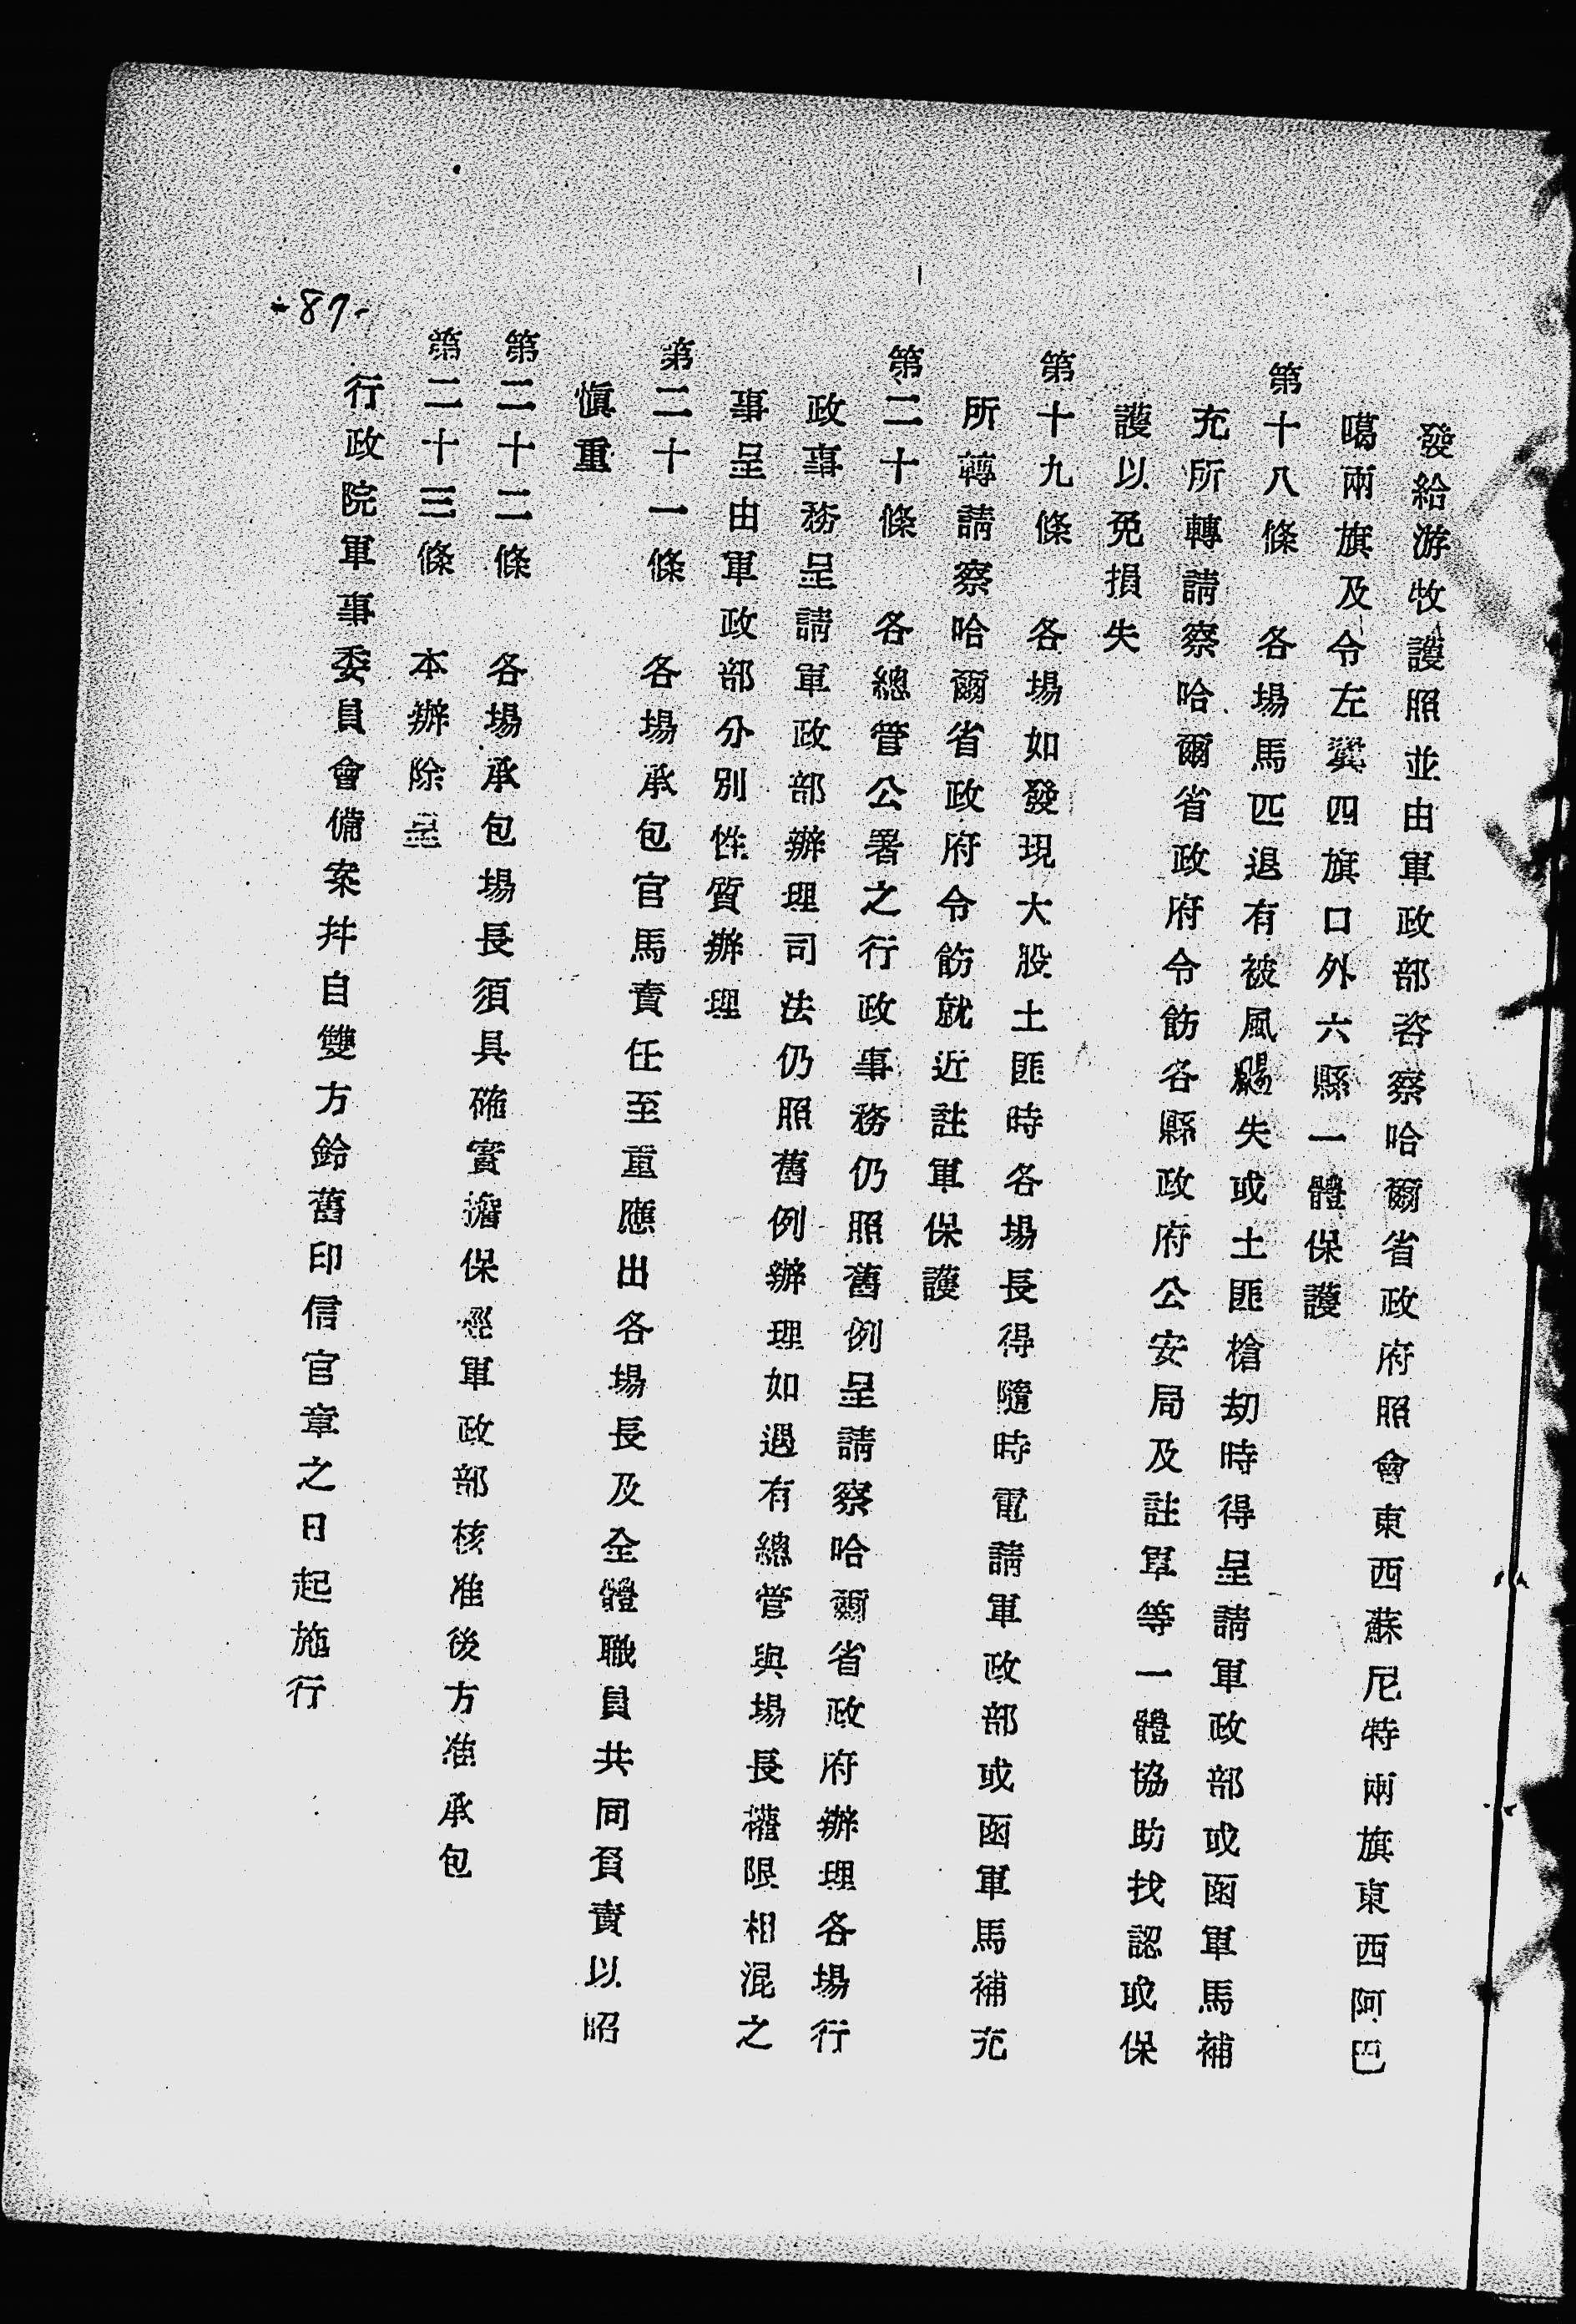 發給游牧護照並由軍政部咨察哈爾省政府照會東西蘇尼特兩旗東西阿巴
噶兩旗及令左翼四旗口外六縣一體保護
第十八條　各場馬匹退有被風颺失或土匪槍刧時得呈請軍政部或函軍馬補
充所轉請察哈爾省政府令飭各縣政府公安局及註軍等一體協助找認或保
護以免損失
第十九條　各場如發現大股土匪時各場長得隨時電請軍政部或函軍馬補充
所轉請察哈爾省政府令飭就近註軍保護
第二十條　各總管公署之行政事務仍照舊例呈請察哈爾省政府辦理各場行
政事務呈請軍政部辦理司法仍照舊例辦理如遇有總管與場長權限相混之
事呈由軍政部分別性質辦理
第二十一條　各場承包官馬責任至重應出各場長及全體職員共同負責以昭
慎重
第二十二條　各場承包場長須具確實擔保經軍政部核准後方准承包
第二十三條　本辦除呈
行政院軍事委員會備案幷自雙方鈐舊印信官章之日起施行
-87-